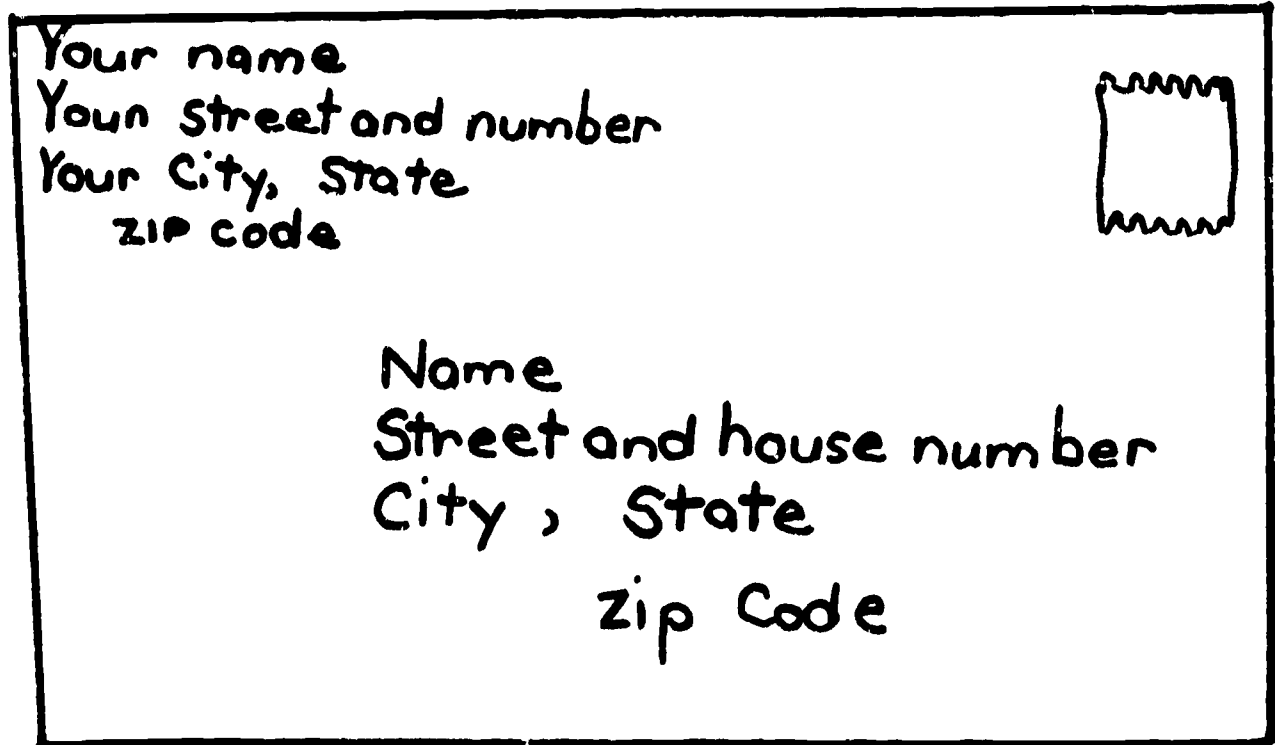 Your name
Your street and number
Your City, State
ZIP code
Name
Street and house number
City, State
Zip Code